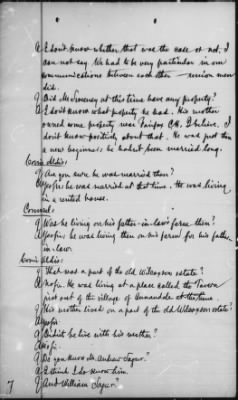 A I don't know whether that was the case or not. I
can not say. We had to be very particular in our
communications between each other — union men
did.
Q Did Mr Sweeney at this time have any property?
A I don't know what property he had. His mother
owned some property near Fairfax C.H. I believe. I
don't know positively about that. He was just then
a new beginner; he hadn't been married long.
Com'r Aldis:
Q Are you sure he was married then?
A Yes sir he was married at that time. He was living
in a rented house.
Counsel:
Q Was he living on his father-in-law's farm then?
A Yes sir; he was living then on a farm for his father
in-law.
Com'r Aldis:
Q That was a part of the old Wilcoxson estate?
A No sir. He was living at a place called the
just out of the village of Annandale at the time.
Q His mother lived on a part of the old Wilcoxson estate?
A Yes sir
Q Didn't he live with his mother?
A No sir.
Q Do you know Mr. Andrew Sagar?
A I think I do know him.
Q And William Sagar?
7